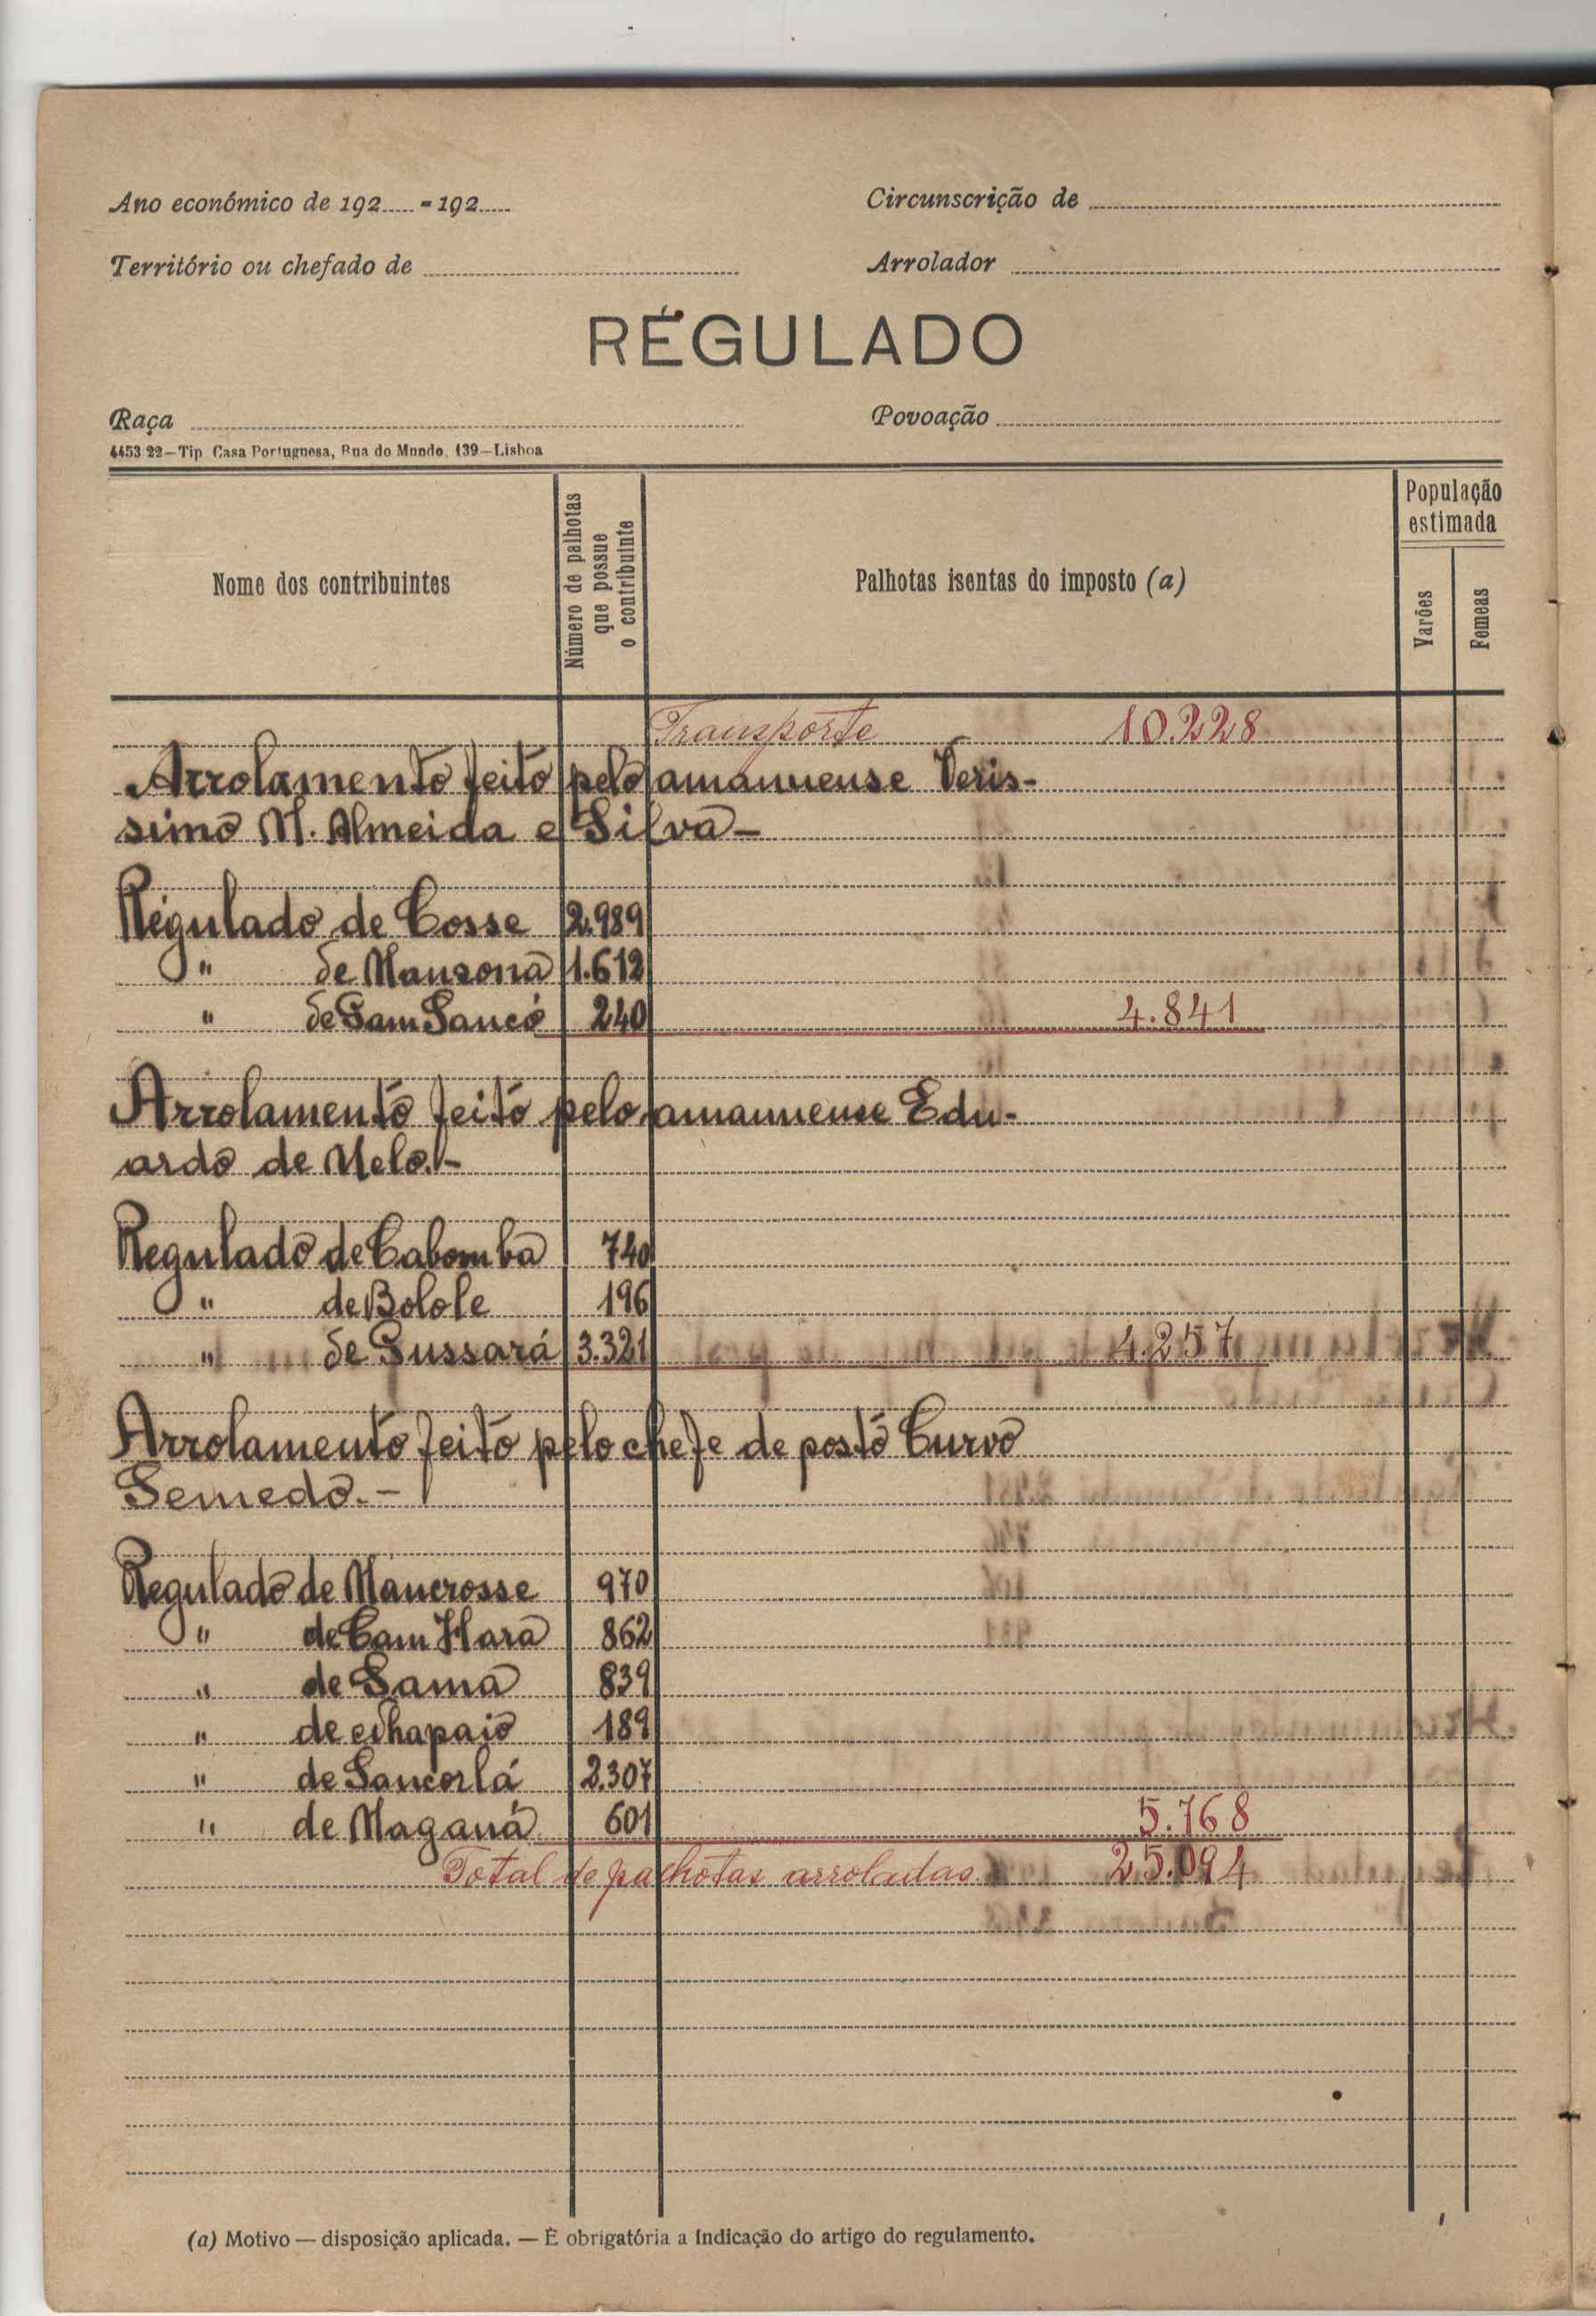 Ano económico de 192..... - 192.....
Circunscrição de
Território ou chefado de
Arrolador
RÉGULADO
Raça
Povoação
4453 22—Tip Casa Portuguesa, Rua do Mundo, 139—Lisboa
Nome dos contribuintes
Número de palhotas que possue o contribuinte
Palhotas isentas do imposto (a)
População estimada
Varões
Femeas
Transporte 10.228
Arrolamento feito pelo amanuense Veris-
simo M. Almeida e Silva—
Régulado de Cosse 2.989
" de Mansona 1.612
" de Gam Sancó 240 4.841
Arrolamento feito pelo amanuense Edu-
ardo de Melo.—
Regulado de Cabomba 740
" de Bolole 196
" de Gussará 3.321 4.257
Arrolamento feito pelo chefe de posto Curvo
Semedo.—
Regulado de Mancrosse 970
" de Cam Hara 862
" de Sama 839
" de 189
" de Sancorlá 2.307
" de Maganá 601 5.768
Total de palhotas arroladas 25.094
(a) Motivo — disposição aplicada. — É obrigatória a indicação do artigo do regulamento.